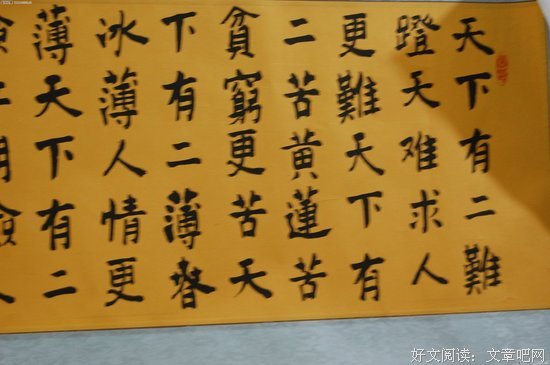 天下有二難
蹬天难求人
更難天下有
二苦黄蓮苦
貧窮更苦天
下有二薄春
冰薄人情更
薄天下有二
好文阅读：文章吧网